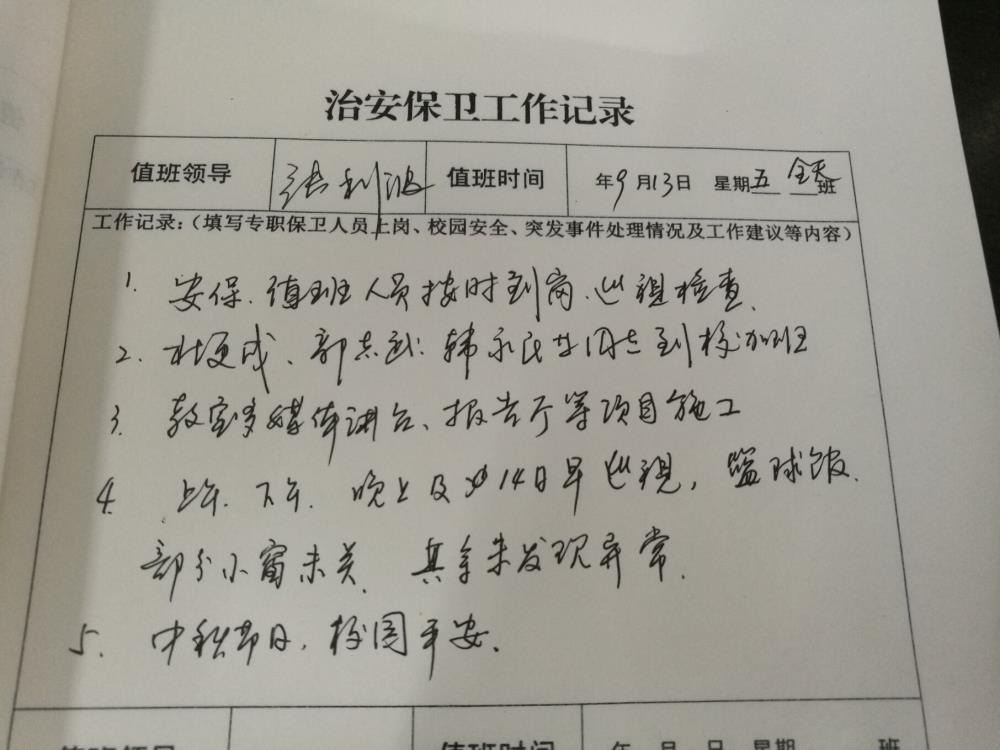 治安保卫工作记录
值班领导 张利波 值班时间 年9月13日 星期五 全天班
工作记录：（填写专职保卫人员上岗、校园安全、突发事件处理情况及工作建议等内容）
1. 安保、值班人员按时到岗、巡视检查.
2. 杜更成、郭志武、韩永民等同志到校加班
3. 教室多媒体讲台、报告厅等项目施工
4. 上午、下午、晚上及14日早巡视，篮球馆
部分小窗未关、其余未发现异常.
5. 中秋节日，校园平安.
值班领导 值班时间 年 月 日 星期 班